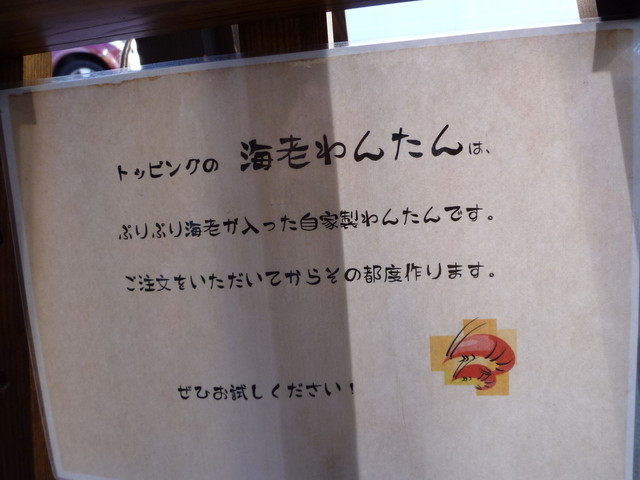 トッピングの 海老わんたんは、
ぷりぷり海老が入った自家製わんたんです。
ご注文をいただいてからその都度作ります。
ぜひお試しください！